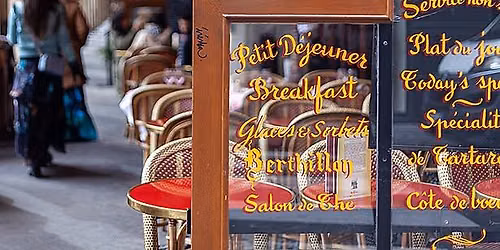 Petit Déjeuner
Breakfast
Glaces & Sorbets
Berthillon
Salon de The
Service non
Plat du jo
Today's spe
Spécialit
de Tartare
Côte de boeu